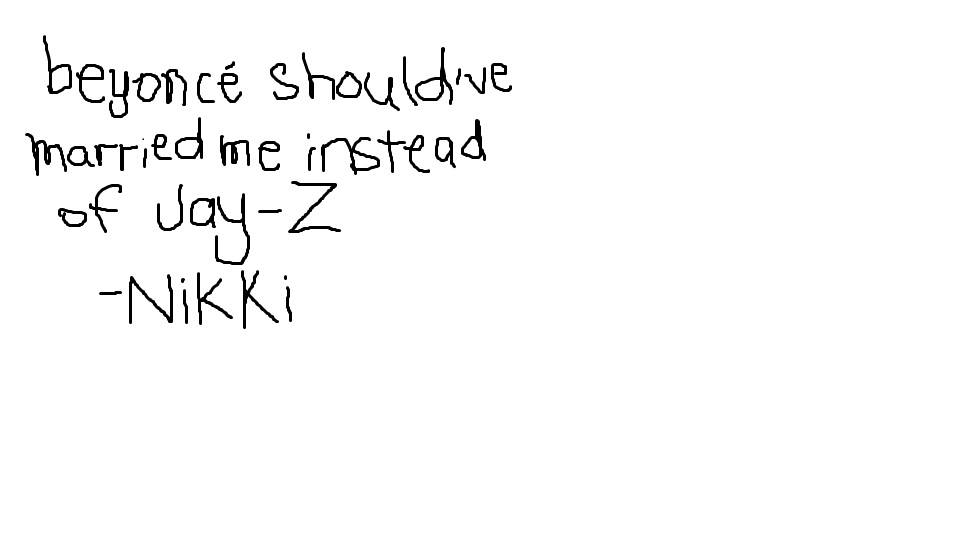 beyoncé should've
married me instead
of Jay-Z
-Nikki